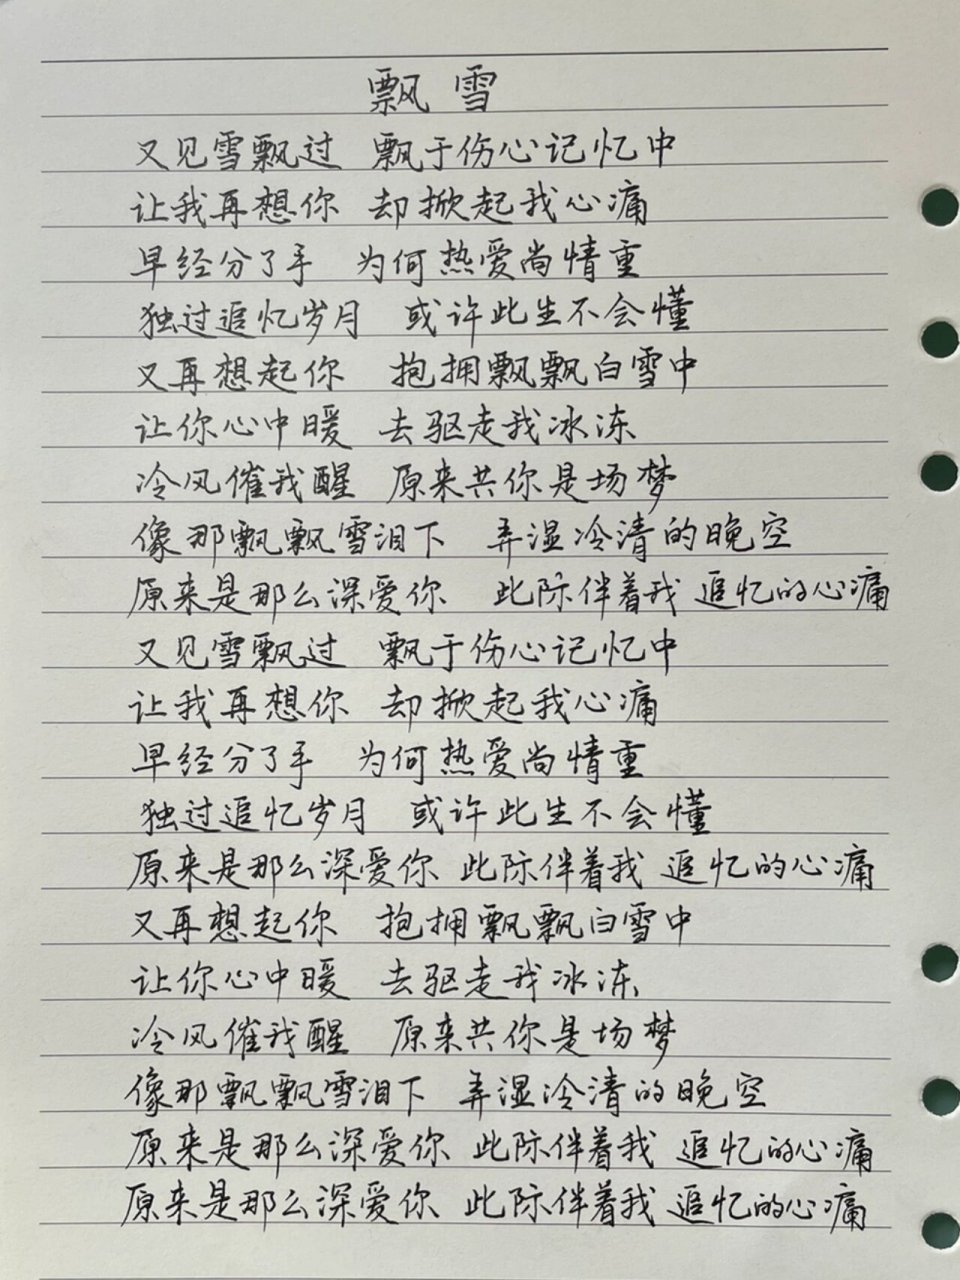 飘雪
又见雪飘过 飘于伤心记忆中
让我再想你 却掀起我心痛
早经分了手 为何热爱尚情重
独过追忆岁月 或许此生不会懂
又再想起你 抱拥飘飘白雪中
让你心中暖 去驱走我冰冻
冷风催我醒 原来共你是场梦
像那飘飘雪泪下 弄湿冷清的晚空
原来是那么深爱你 此际伴着我 追忆的心痛
又见雪飘过 飘于伤心记忆中
让我再想你 却掀起我心痛
早经分了手 为何热爱尚情重
独过追忆岁月 或许此生不会懂
原来是那么深爱你 此际伴着我 追忆的心痛
又再想起你 抱拥飘飘白雪中
让你心中暖 去驱走我冰冻
冷风催我醒 原来共你是场梦
像那飘飘雪泪下 弄湿冷清的晚空
原来是那么深爱你 此际伴着我 追忆的心痛
原来是那么深爱你 此际伴着我 追忆的心痛